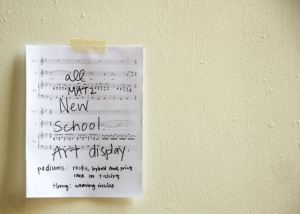 all
MAT2
New
School
Art display
podiums: rocks, hybrid food, pring
rack for t-shirts
Hang: weaving circles